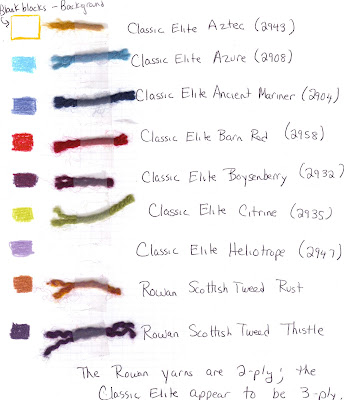 Blank blocks - Background
Classic Elite Aztec (2943)
Classic Elite Azure (2908)
Classic Elite Ancient Mariner (2904)
Classic Elite Barn Red (2958)
Classic Elite Boysenberry (2932)
Classic Elite Citrine (2935)
Classic Elite Heliotrope (2947)
Rowan Scottish Tweed Rust
Rowan Scottish Tweed Thistle
The Rowan yarns are 2-ply; the
Classic Elite appear to be 3-ply.